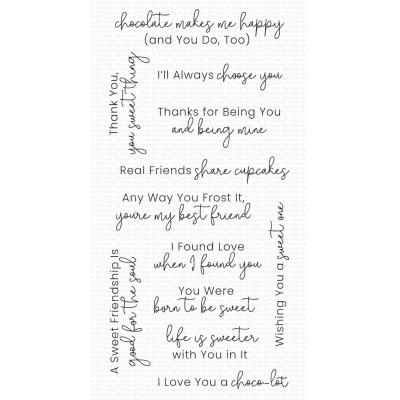 chocolate makes me happy
(and You Do, Too)
Thank You,
you sweet thing
I'll Always choose you
Thanks for Being You
and being mine
Real Friends share cupcakes
Any Way You Frost It,
you're my best friend
I Found Love
when I found you
Wishing You a sweet one
A Sweet Friendship Is
good for the soul
You Were
born to be sweet
life is sweeter
with You in It
I Love You a choco-lot